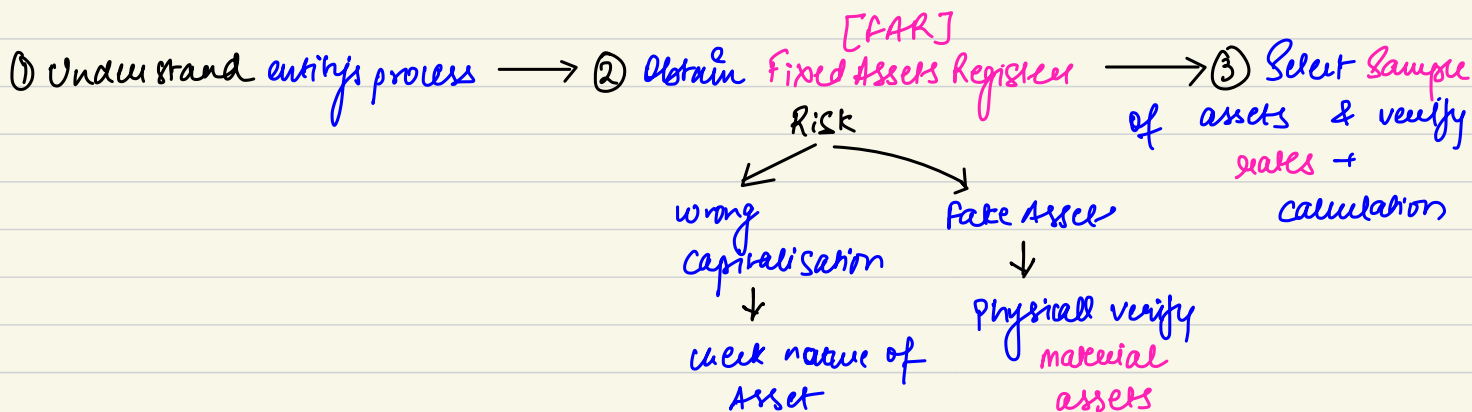 [FAR]
① Understand entity's process → ② Obtain Fixed Assets Register → ③ Select Sample
of assets & verify
rates +
calculation
Risk
Wrong
Capitalisation
↓
check nature of
Asset
Fake Asset
↓
Physicall verify
material
assets